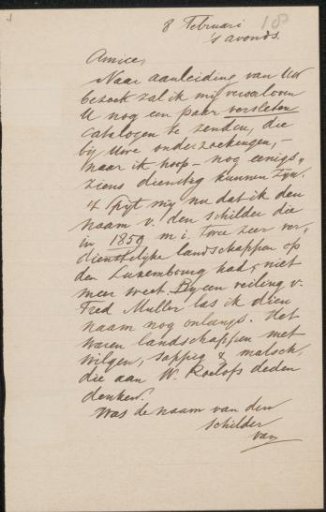 8 Februari 18
's avonds.
Amice,
Naar aanleiding van Uw
bezoek zal ik mij veroorloven
U nog een paar versleten
catalogen te zenden, die
bij Uwe onderzoekingen, -
naar ik hoop - nog eenigs,
zins dienstig kunnen zijn.
't Spijt mij nu dat ik den
naam v. den schilder die
in 1859 m. i. twee zeer ver,
dienstelijke landschappen op
den Luxembourg had, niet
meer weet. Bij een veiling v.
Fred Muller las ik dien
naam nog onlangs. Het
waren landschappen met
wilgen, sappig & malsch,
die aan W. Roelofs deden
denken.
Was de naam van den
schilder
van